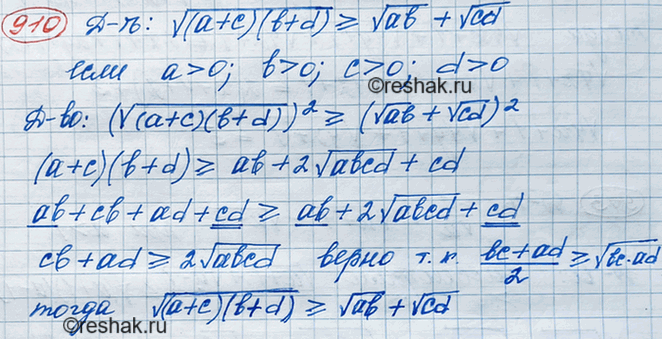 910 Д-ть: √(a+c)(b+d) ≥ √ab + √cd
если a>0; b>0; c>0; d>0
©reshak.ru
Д-во: (√(a+c)(b+d))² ≥ (√ab + √cd)²
(a+c)(b+d) ≥ ab + 2√abcd + cd
ab + cb + ad + cd ≥ ab + 2√abcd + cd
cb + ad ≥ 2√abcd верно т.к. bc+ad/2 ≥ √bc·ad
тогда √(a+c)(b+d) ≥ √ab + √cd
©reshak.ru